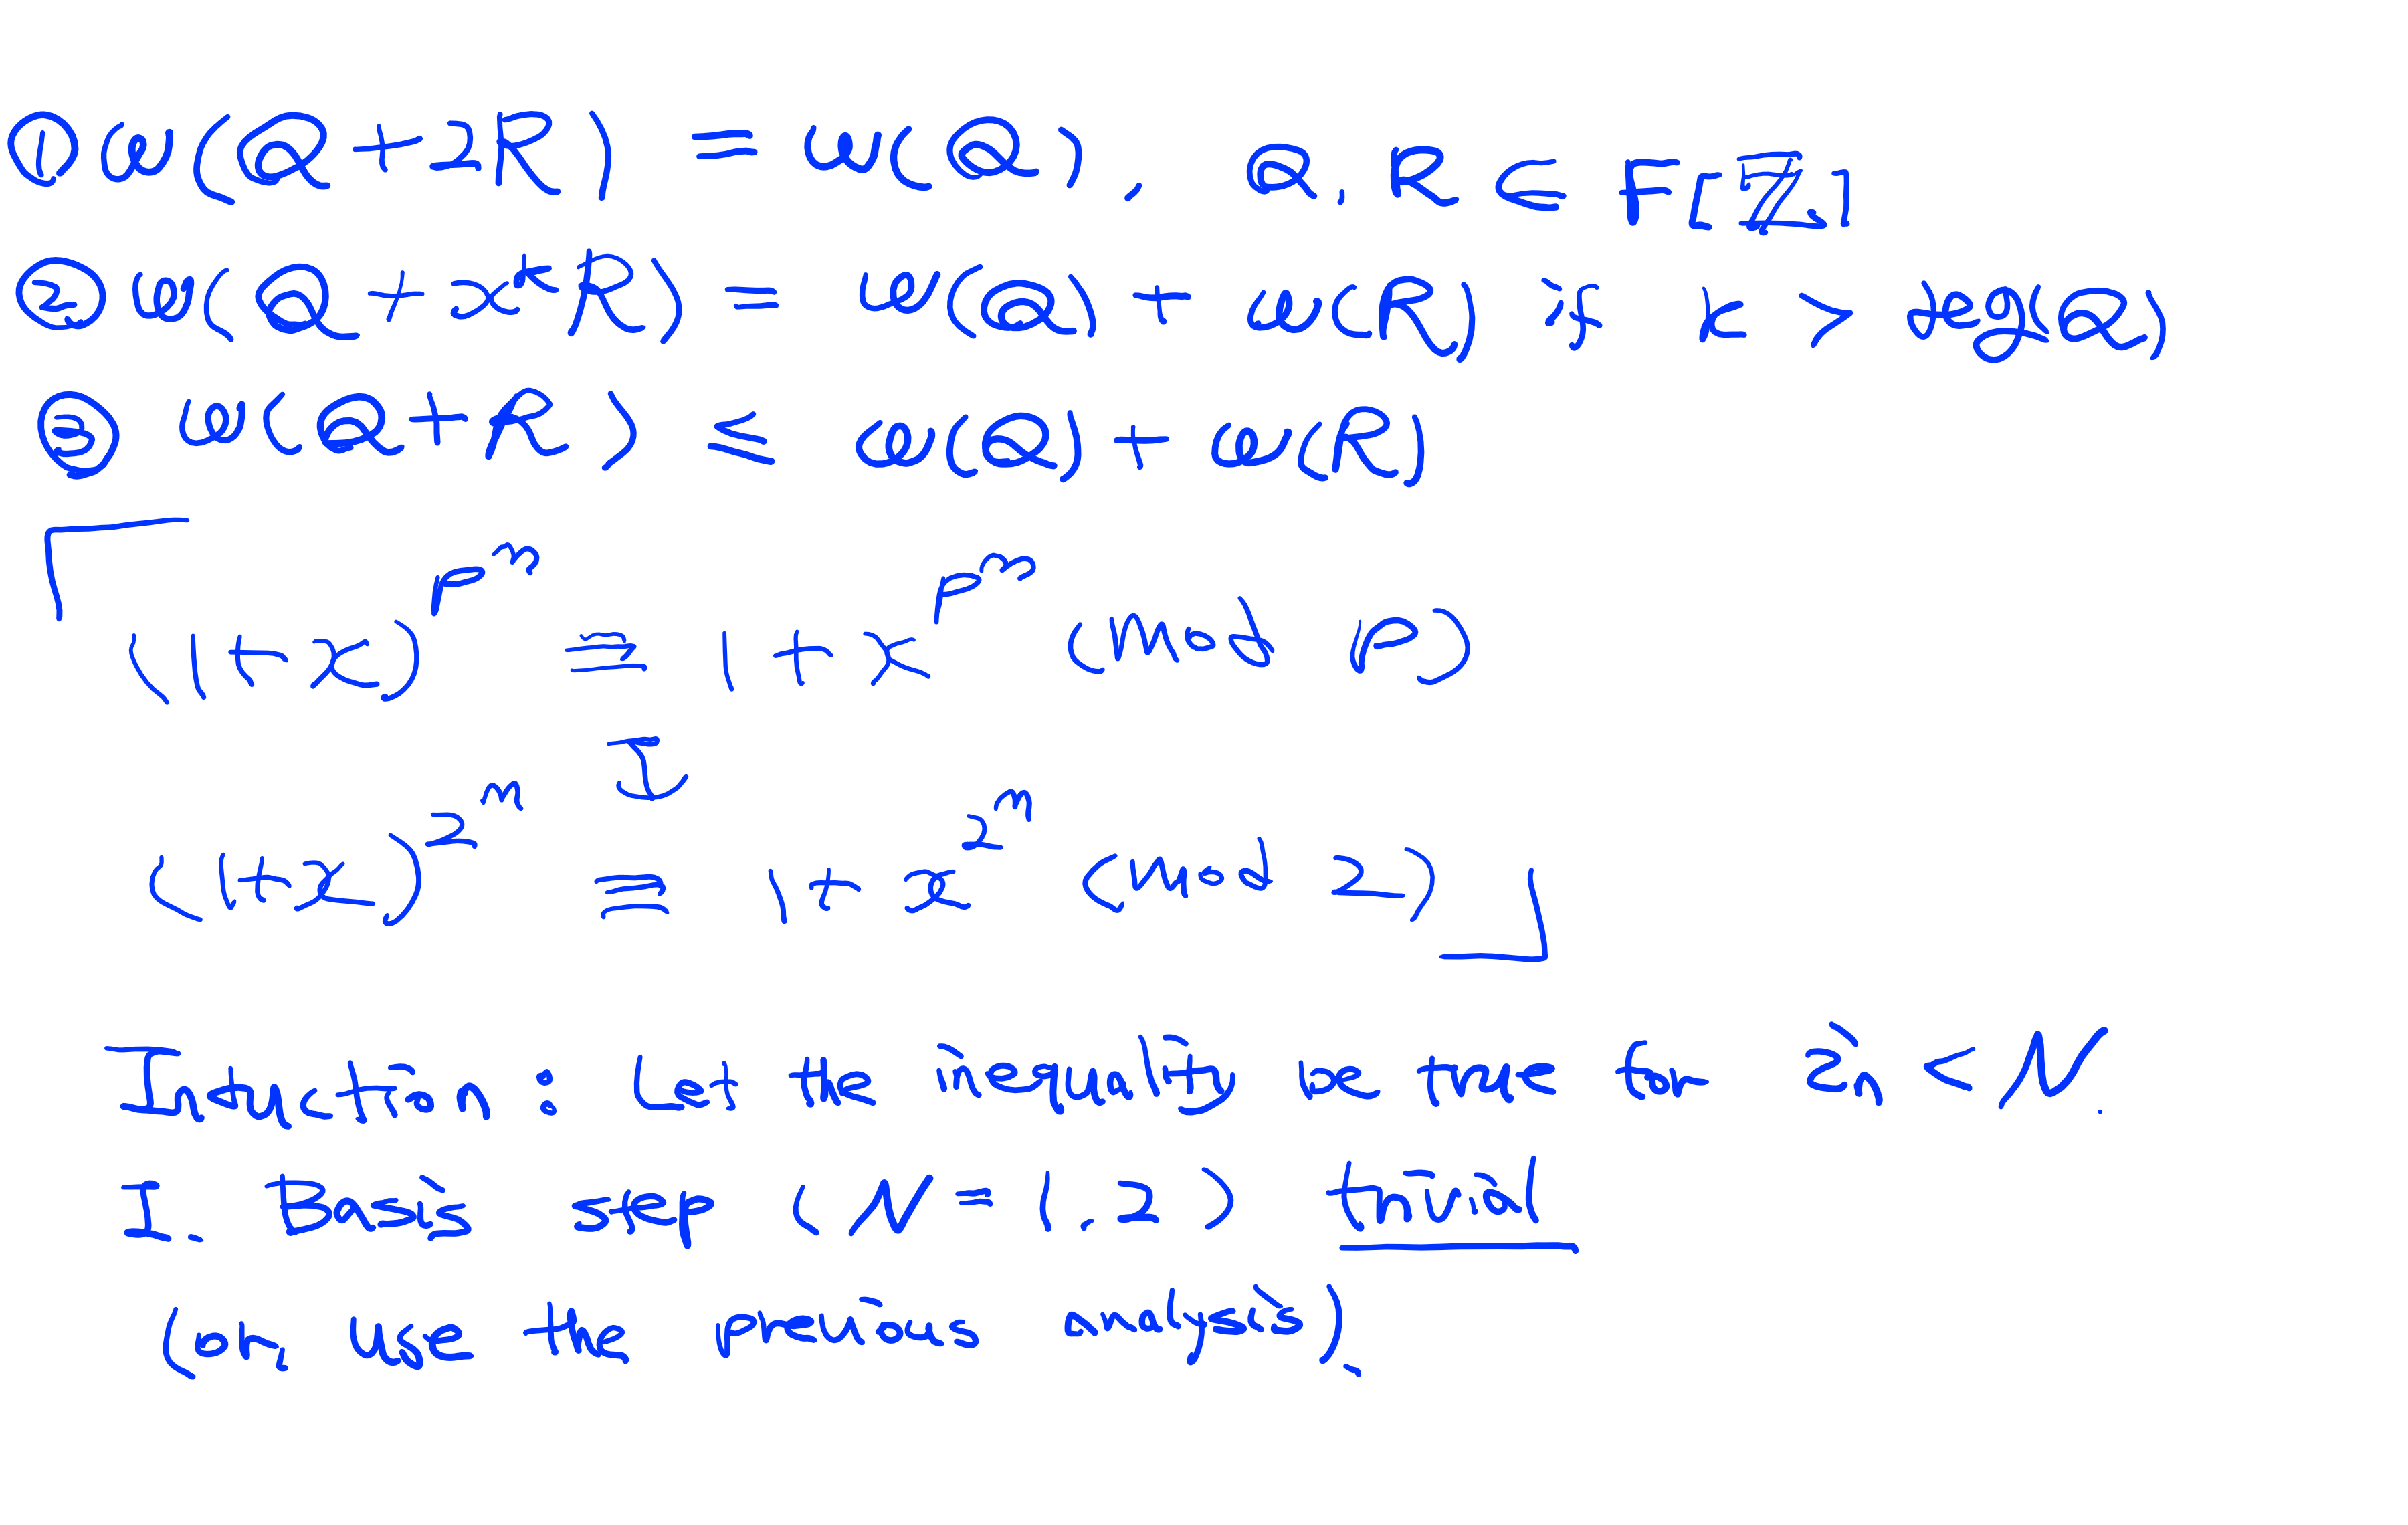 ① w(Q+2R) = w(Q), Q, R ⊂ F[ℤ]
② w(Q+x^k R) = w(Q) + w(R) if k > deg(Q)
③ w(Q+R) ≤ w(Q) + w(R)
(1+x)^{p^m} ≡ 1+x^{p^m} (mod p)
↓
(1+x)^{2^m} ≡ 1+x^{2^m} (mod 2)
Induction : Let the inequality be true for in < N.
I. Basis step (N=1,2) trivial
(or, use the previous analysis).